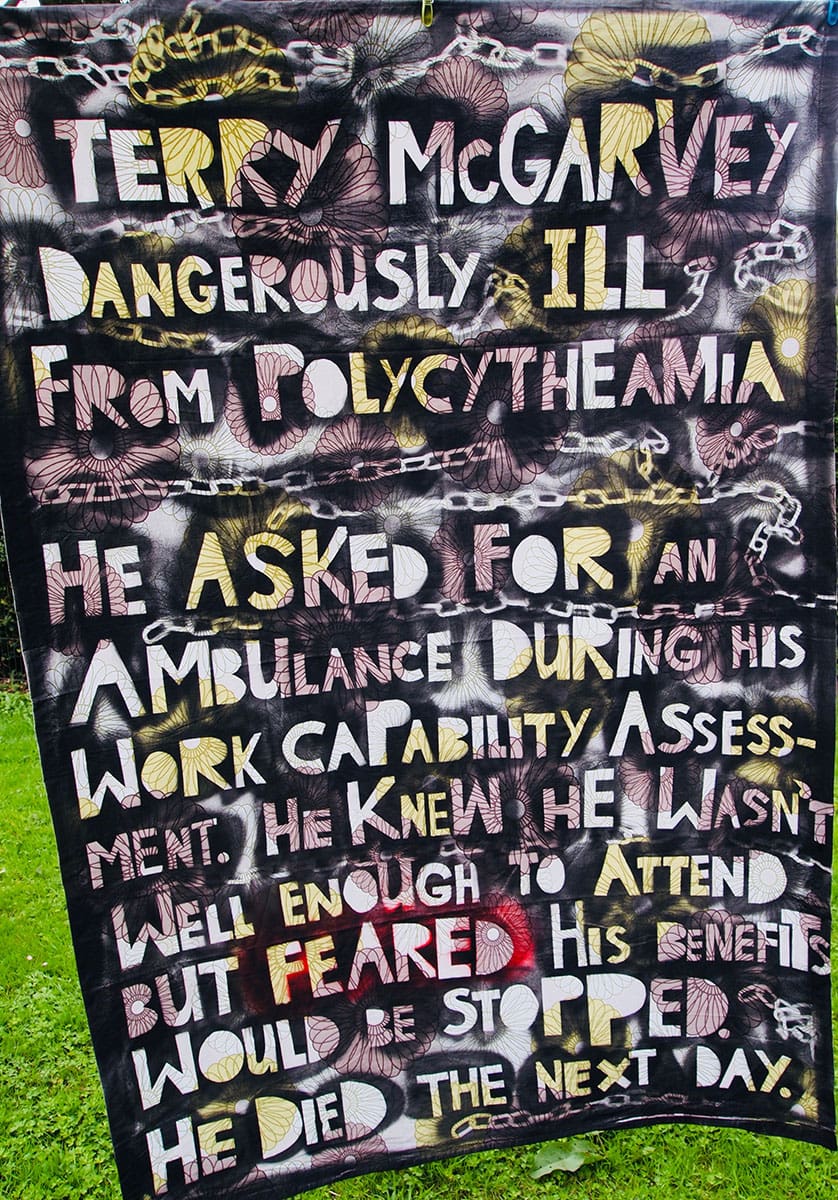 TERRY McGARVEY
DANGEROUSLY ILL
FROM POLYCYTHEAMIA
HE ASKED FOR AN
AMBULANCE DURING HIS
WORK CAPABILITY ASSESS-
MENT. HE KNEW HE WASN'T
WELL ENOUGH TO ATTEND
BUT FEARED HIS BENEFITS
WOULD BE STOPPED.
HE DIED THE NEXT DAY.